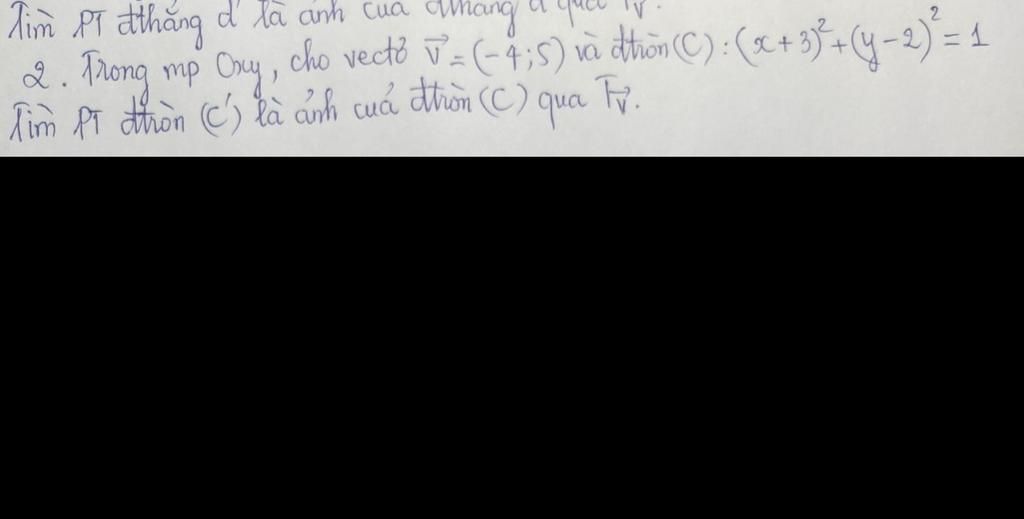 Tìm PT đthẳng d' là ảnh của đthẳng d qua Tv.
2. Trong mp Oxy, cho vectơ v⃗ = (-4;5) và đtròn (C) : (x+3)² + (y-2)² = 1
Tìm PT đtròn (C') là ảnh cuả đtròn (C) qua Tv⃗.